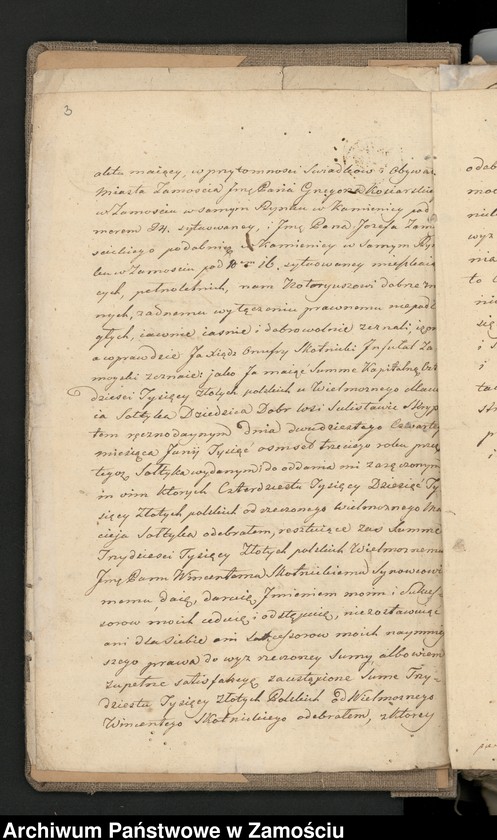 3
aktu maiący, w przytomności Swiadków i Obywat
Miasta Zamościa Jmę Pana Grzegorza Kosiarskie
w Zamościu w samym Rynku w Kamienicy pod
numerem 94. sytuowaney, i Jmę Pana Jozefa Zam
podobnież Kamienicy w Samym Ryn
ku w Zamościu pod N 16. sytuowaney mieszkaia
cych, pełnoletnich, nam Notaryuszowi dobrze zna
nych, żadnemu wyłączeniu prawnemu niepodle
głych, iawnie iasnie i dobrowolnie zeznali; iż on
a woprawdzie Ja Xiądz Onufry Skotnicki Infułat Za
moyski zeznaie: jako Ja maiąc Summę Kapitalną Czter
dziesci Tysięcy Złotych polskich u Wielmożnego Macie
ia Sołtyka Dziedzica Dobr wsi Sulisławic Skryp
tem ręcznodaynym dnia dwudziestego Czwartego
miesiąca Junij Tysiąc osmset trzeciego roku przez
tegoż Sołtyka wydanym do oddania mi zaręczonym
in vim których Czterdziestu Tysięcy Dziesięć Ty
sięcy Złotych polskich od rzeczonego Wielmożnego Ma
cieja Sołtyka odebrałem, resztuiące zaś Summę
Trzydziesci Tysięcy Złotych polskich Wielmożnemu
Jmę Panu Wincentemu Skotnickiemu Synowcowi
memu, daię, daruię, Jmieniem moim i Sukces
sorow moich ceduię, i odstępuię, niezostawuiąc
ani dla siebie ani sukcessorow moich naymniey
szego prawa do wyż rzeczoney Sumy, albowiem
zupełne satisfakcyę za ustąpione Sumę Trzy-
dziestu Tysięcy Złotych Polskich od Wielmożnego
Wincentego Skotnickiego odebrałem, z ktorey
Archiwum Państwowe w Zamościu